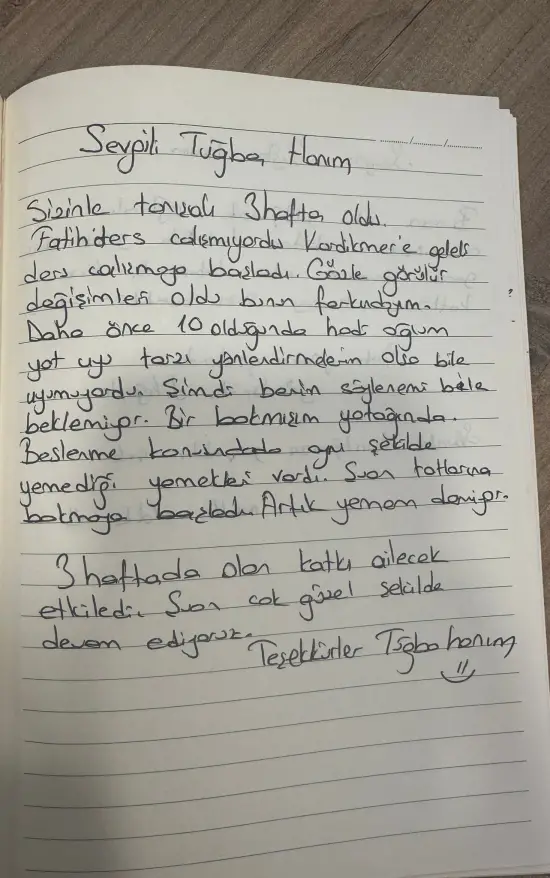 Sevgili Tuğba Hanım
Sizinle tanışalı 3 hafta oldu.
Fatih ders çalışmıyordu Kardikmer'e geleli
ders çalışmaya başladı. Gözle görülür
değişimleri oldu bunun farkındayım.
Daha önce 10 olduğunda hadi oğlum
yat uyu tarzı yönlendirmelerim olsa bile
uyumuyordu. Şimdi benim söylememi bile
beklemiyor. Bir bakmışım yatağında.
Beslenme konusunda aynı şekilde
yemediği yemekleri vardı. Şuan tatlarına
bakmaya başladı. Artık yemem demiyor.
3 haftada olan katkı ailecek
etkiledi. Şuan çok güzel şekilde
devam ediyoruz.
Teşekkürler Tuğba hanım